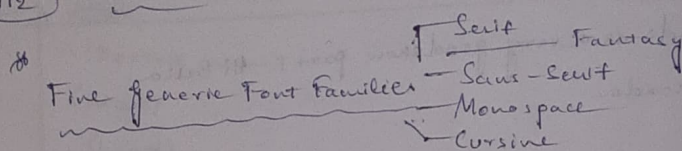 12
Five generic Font Families
Serif
Fantasy
Sans-Serif
Monospace
Cursive